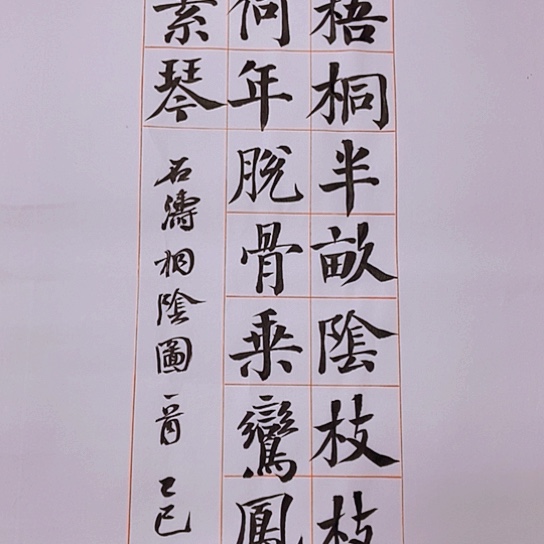 梧桐半畝陰枝枝
何年脫骨乘鸞鳳
素琴
石濤桐陰圖一首乙巳